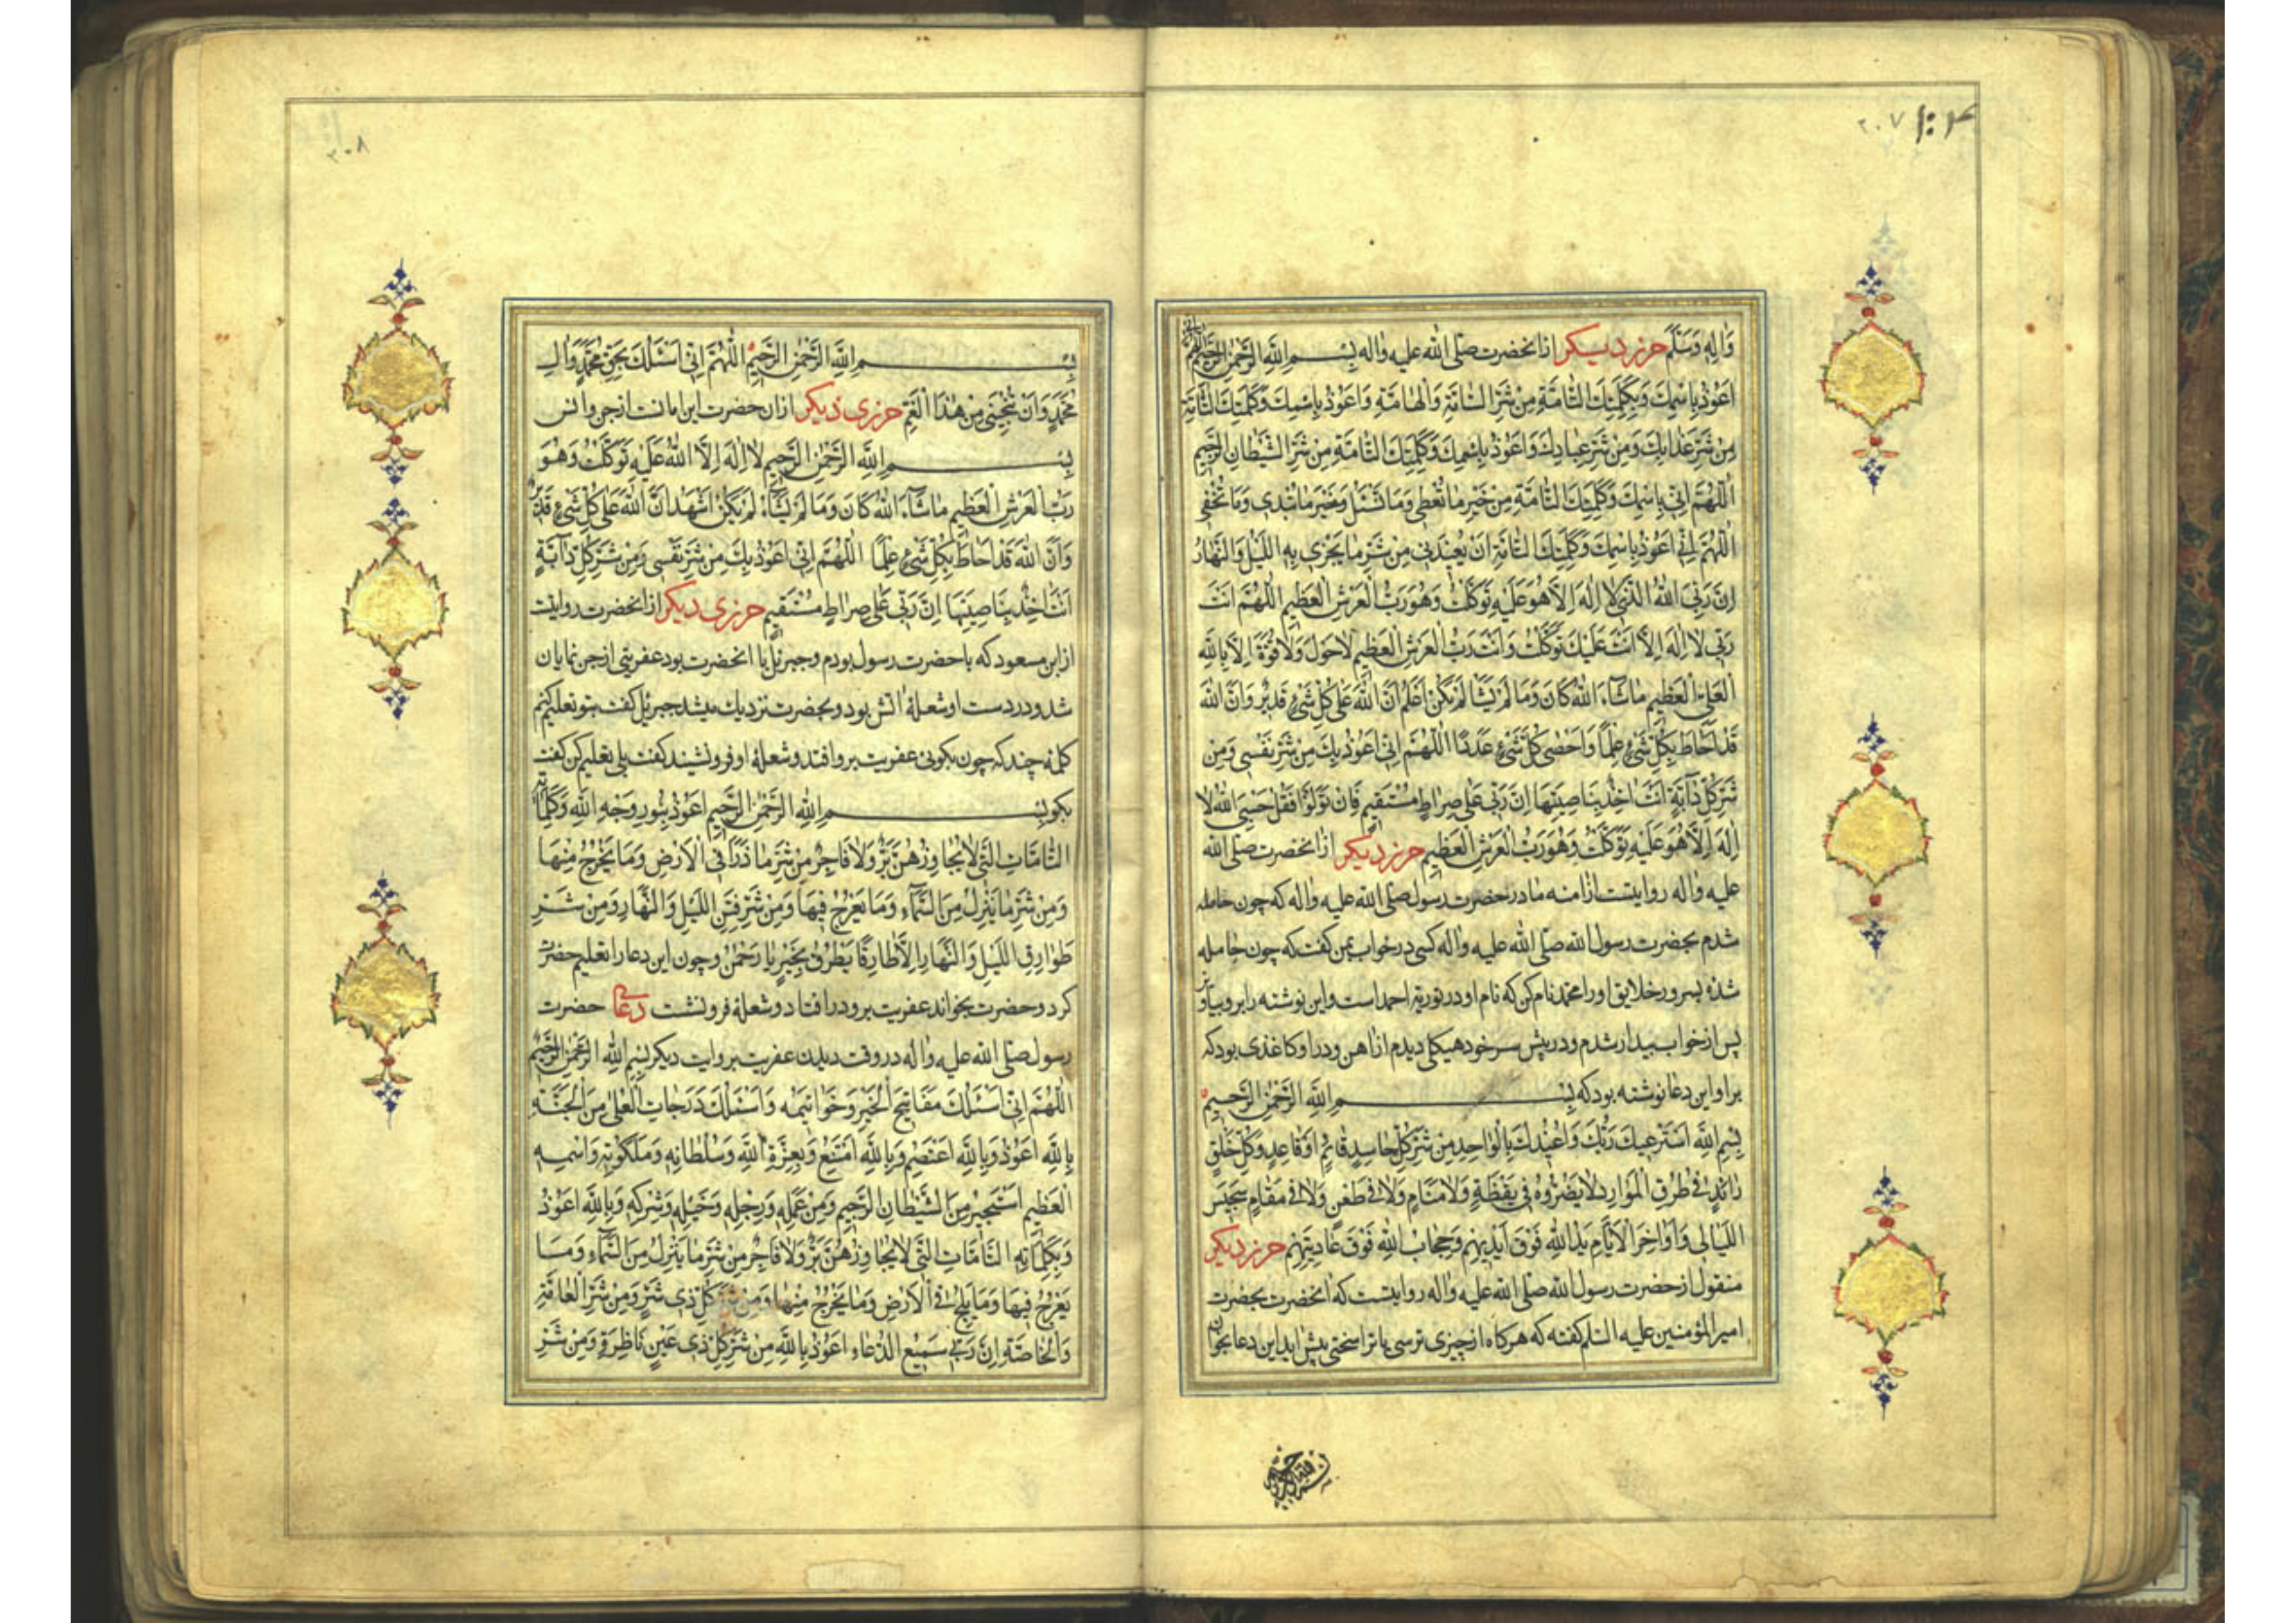 ۲۰۷
وَالِهِ وَسَلَّمَ حرز دیکر ازانحضرت صلی الله علیه واله بِسْمِ اللَّهِ الرَّحْمٰنِ الرَّحِيمِ
اَعُوذُ بِاسْمِكَ وَبِكَلِمَتِكَ التَّامَّةِ مِنْ شَرِّ السَّامَّةِ وَالْهَامَّةِ وَاَعُوذُ بِاسْمِكَ وَكَلِمَتِكَ التَّامَّةِ
مِنْ شَرِّ عَذَابِكَ وَمِنْ شَرِّ عِبَادِكَ وَاَعُوذُ بِاسْمِكَ وَكَلِمَتِكَ التَّامَّةِ مِنْ شَرِّ الشَّيْطَانِ الرَّجِيمِ
اَللّٰهُمَّ اِنِّي بِاسْمِكَ وَكَلِمَتِكَ التَّامَّةِ مِنْ خَيْرِ مَا تُعْطِى وَمَا تُسْئَلُ وَخَيْرِ مَا تُبْدِى وَمَا تُخْفِى
اَللّٰهُمَّ اِنِّي اَعُوذُ بِاسْمِكَ وَكَلِمَتِكَ التَّامَّةِ اَنْ تُعِيذَنِي مِنْ شَرِّ مَا يَجْرِى بِهِ اللَّيْلُ وَالنَّهَارُ
اِنَّ رَبِّيَ اللهُ الَّذِي لَا اِلٰهَ اِلَّا هُوَ عَلَيْهِ تَوَكَّلْتُ وَهُوَ رَبُّ الْعَرْشِ الْعَظِيمِ اَللّٰهُمَّ اَنْتَ
رَبِّي لَا اِلٰهَ اِلَّا اَنْتَ عَلَيْكَ تَوَكَّلْتُ وَاَنْتَ رَبُّ الْعَرْشِ الْعَظِيمِ لَا حَوْلَ وَلَا قُوَّةَ اِلَّا بِاللهِ
الْعَلِيِّ الْعَظِيمِ مَا شَآءَ اللهُ كَانَ وَمَا لَمْ يَشَأْ لَمْ يَكُنْ اَعْلَمُ اَنَّ اللهَ عَلٰى كُلِّ شَيْءٍ قَدِيرٌ وَاَنَّ اللهَ
قَدْ اَحَاطَ بِكُلِّ شَيْءٍ عِلْمًا وَاَحْصٰى كُلَّ شَيْءٍ عَدَدًا اَللّٰهُمَّ اِنِّي اَعُوذُ بِكَ مِنْ شَرِّ نَفْسِي وَمِنْ
شَرِّ كُلِّ دَآبَّةٍ اَنْتَ اٰخِذٌ بِنَاصِيَتِهَا اِنَّ رَبِّي عَلٰى صِرَاطٍ مُسْتَقِيمٍ فَاِنْ تَوَلَّوْا فَقُلْ حَسْبِيَ اللهُ لَا
اِلٰهَ اِلَّا هُوَ عَلَيْهِ تَوَكَّلْتُ وَهُوَ رَبُّ الْعَرْشِ الْعَظِيمِ حرز دیکر ازانحضرت صلی الله
علیه واله روایتست ازامنه مادر حضرت رسول صلی الله علیه واله که چون حامله
شدم بحضرت رسول الله صلی الله علیه واله کسی در خواب بمن کفت که چون حامله
شده بسرور خلایق اورا محمد نام کن که نام او در توریة احمد است واین نوشته را برو بیاویز
پس از خواب بیدار شدم ودر پیش سر خود هیکلی دیدم ازاهن ودر او کاغذی بود که
براواین دعا نوشته بود که بِسْمِ اللَّهِ الرَّحْمٰنِ الرَّحِيمِ
بِسْمِ اللهِ اَسْتَرْعِيكَ رَبَّكَ وَاُعِيذُكَ بِالْوَاحِدِ مِنْ شَرِّ كُلِّ حَاسِدٍ قَائِمٍ اَوْ قَاعِدٍ وَكُلِّ خَلْقٍ
رَائِدٍ فِي طُرُقِ الْمَوَارِدِ لَا يَضُرُّوهُ فِي يَقْظَةٍ وَلَا مَنَامٍ وَلَا فِي ظَعْنٍ وَلَا فِي مَقَامٍ سَجِيسَ
اللَّيَالِي وَاَوَاخِرَ الْاَيَّامِ يَدُ اللهِ فَوْقَ اَيْدِيهِمْ وَحِجَابُ اللهِ فَوْقَ عَادِيَتِهِمْ حرز دیکر
منقول از حضرت رسول الله صلی الله علیه واله روایتست که انحضرت بحضرت
امیرالمؤمنین علیه السلم کفته که هرکاه ازچیزی ترسی یا ترا سختی پیش اید این دعا بخوان
۲۰۸
بِسْمِ اللَّهِ الرَّحْمٰنِ الرَّحِيمِ اَللّٰهُمَّ اِنِّي اَسْئَلُكَ بِحَقِّ مُحَمَّدٍ وَالِ
مُحَمَّدٍ وَاَنْ تُنْجِيَنِي مِنْ هٰذَا الْغَمِّ حرزی دیکر ازان حضرت این امانت ازجن وانس
بِسْمِ اللَّهِ الرَّحْمٰنِ الرَّحِيمِ لَا اِلٰهَ اِلَّا اللهُ عَلَيْهِ تَوَكَّلْتُ وَهُوَ
رَبُّ الْعَرْشِ الْعَظِيمِ مَا شَآءَ اللهُ كَانَ وَمَا لَمْ يَشَأْ لَمْ يَكُنْ اَشْهَدُ اَنَّ اللهَ عَلٰى كُلِّ شَيْءٍ قَدِيرٌ
وَاَنَّ اللهَ قَدْ اَحَاطَ بِكُلِّ شَيْءٍ عِلْمًا اَللّٰهُمَّ اِنِّي اَعُوذُ بِكَ مِنْ شَرِّ نَفْسِي وَمِنْ شَرِّ كُلِّ دَآبَّةٍ
اَنْتَ اٰخِذٌ بِنَاصِيَتِهَا اِنَّ رَبِّي عَلٰى صِرَاطٍ مُسْتَقِيمٍ حرزی دیکر ازانحضرت روایت
ازابن مسعود که با حضرت رسول بودم وجبرئیل با انحضرت بود عفریتی ازجن نمایان
شد ودر دست او شعلهٔ اتش بود وبحضرت نزدیك میشد جبرئیل کفت بتو تعلیم کنم
کلمهٔ چند که چون بکوئی عفریت برو افتد وشعلهٔ او فرونشیند کفت بلی تعلیم کن کفت
بکو بِسْمِ اللهِ الرَّحْمٰنِ الرَّحِيمِ اَعُوذُ بِنُورِ وَجْهِ اللهِ وَكَلِمَاتِهِ
التَّامَّاتِ الَّتِي لَا يُجَاوِزُهُنَّ بَرٌّ وَلَا فَاجِرٌ مِنْ شَرِّ مَا ذَرَاَ فِي الْاَرْضِ وَمَا يَخْرُجُ مِنْهَا
وَمِنْ شَرِّ مَا يَنْزِلُ مِنَ السَّمَآءِ وَمَا يَعْرُجُ فِيهَا وَمِنْ شَرِّ فِتَنِ اللَّيْلِ وَالنَّهَارِ وَمِنْ شَرِّ
طَوَارِقِ اللَّيْلِ وَالنَّهَارِ اِلَّا طَارِقًا يَطْرُقُ بِخَيْرٍ يَا رَحْمٰنُ وچون این دعا را تعلیم حضرت
کرد وحضرت بخواند عفریت برو درافتاد وشعلهٔ فرونشت دعای حضرت
رسول صلی الله علیه واله در وقت دیدن عفریت بروایت دیکر بِسْمِ اللهِ الرَّحْمٰنِ الرَّحِيمِ
اَللّٰهُمَّ اِنِّي اَسْئَلُكَ مَفَاتِيحَ الْخَيْرِ وَخَوَاتِيمَهُ وَاَسْئَلُكَ دَرَجَاتِ الْعُلٰى مِنَ الْجَنَّةِ
بِاللهِ اَعُوذُ وَبِاللهِ اَعْتَصِمُ وَبِاللهِ اَمْتَنِعُ وَبِعِزَّةِ اللهِ وَسُلْطَانِهِ وَمَلَكُوتِهِ وَاسْمِهِ
الْعَظِيمِ اَسْتَجِيرُ مِنَ الشَّيْطَانِ الرَّجِيمِ وَمِنْ عَمَلِهِ وَرَجْلِهِ وَخَيْلِهِ وَشِرْكِهِ وَبِاللهِ اَعُوذُ
وَبِكَلِمَاتِهِ التَّامَّاتِ الَّتِي لَا يُجَاوِزُهُنَّ بَرٌّ وَلَا فَاجِرٌ مِنْ شَرِّ مَا يَنْزِلُ مِنَ السَّمَآءِ وَمَا
يَعْرُجُ فِيهَا وَمَا يَلِجُ فِي الْاَرْضِ وَمَا يَخْرُجُ مِنْهَا وَمِنْ شَرِّ كُلِّ ذِي شَرٍّ وَمِنْ شَرِّ الْعَامَّةِ
وَالْخَاصَّةِ اِنَّ رَبِّي سَمِيعُ الدُّعَاءِ اَعُوذُ بِاللهِ مِنْ شَرِّ كُلِّ ذِي عَيْنٍ نَاظِرَةٍ وَمِنْ شَرِّ